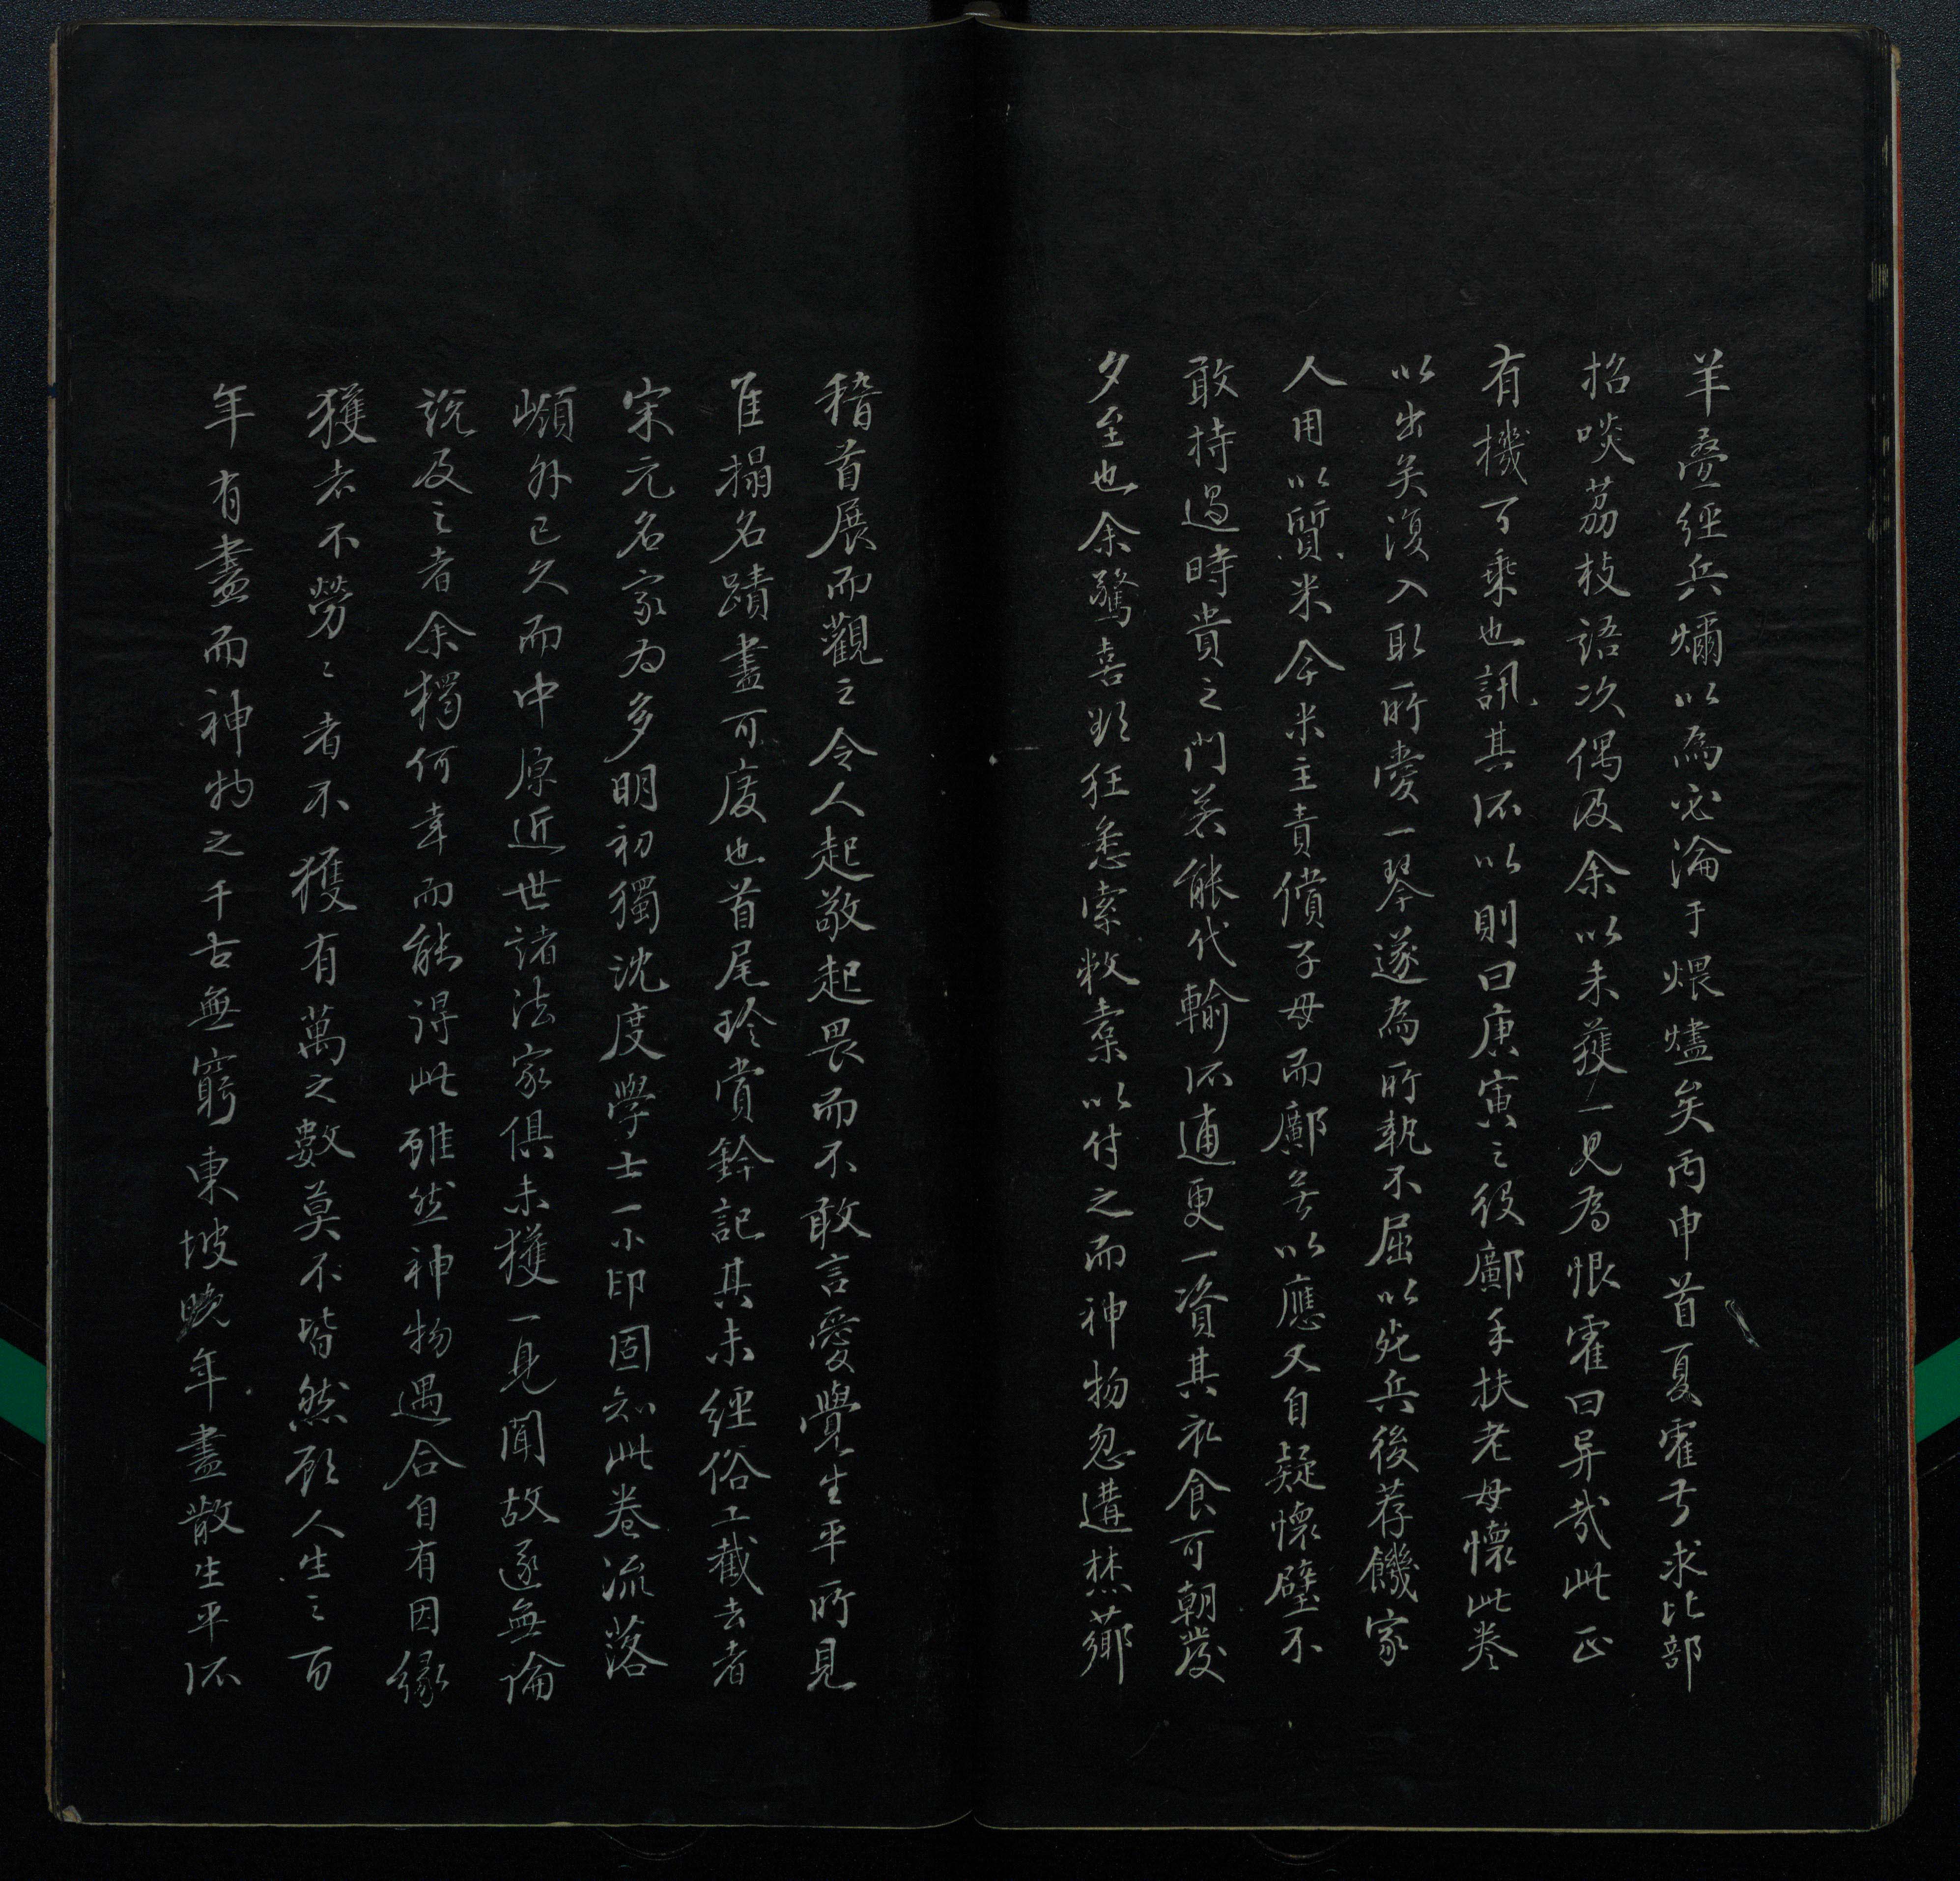 羊疊經兵爚以為必淪于煨燼矣丙申首夏霍子求比部
招啖荔枝語次偶及余以未獲一見為恨霍曰异哉此正
有機可乘也訊其所以則曰庚寅之役鄺手扶老母懷此卷
以出矣復入取所愛一琴遂為所執不屈以死兵後荐饑家
人用以質米今米主責償子母而鄺無以應又自疑懷璧不
敢持過時貴之門若能代輸所逋更一資其衣食可朝發
夕至也余驚喜欲狂悉索敝橐以付之而神物忽遘焚薌
稽首展而觀之令人起敬起畏而不敢言愛覺生平所見
隹搨名蹟盡可廢也首尾珍賞鈐記其未經俗工截去者
宋元名家為多明初獨沈度學士一小印固知此卷流落
嶺外已久而中原近世諸法家俱未獲一見聞故遂無論
說及之者余獨何幸而能得此雖然神物遇合自有因緣
獲者不勞〻者不獲有萬之數莫不皆然顧人生〻百
年有盡而神物之千古無窮東坡晚年盡散生平所